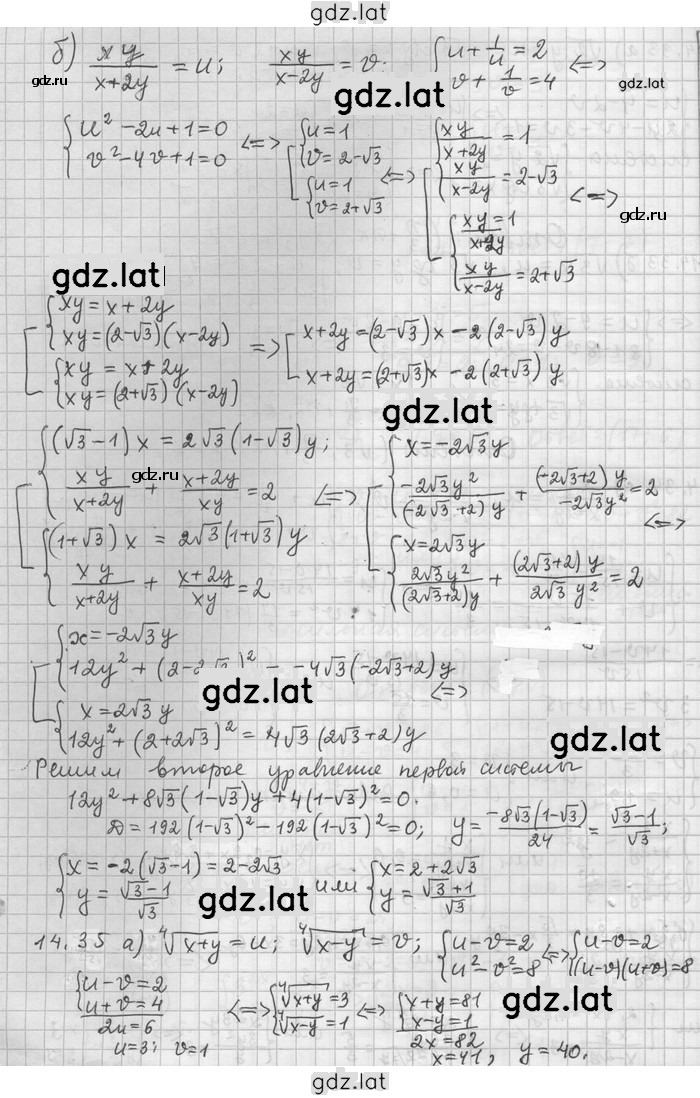 gdz.lat
б) xy/(x+2y) = u; xy/(x-2y) = v. { u + 1/u = 2 <=>
{ v + 1/v = 4
gdz.lat
{ u² - 2u + 1 = 0 <=> [ { u = 1
{ v² - 4v + 1 = 0 { v = 2-√3
{ u = 1
{ v = 2+√3
<=> [ { xy/(x+2y) = 1
{ xy/(x-2y) = 2-√3 <=>
{ xy/(x+2y) = 1
{ xy/(x-2y) = 2+√3
gdz.lat
[ { xy = x + 2y
{ xy = (2-√3)(x-2y)
{ xy = x + 2y
{ xy = (2+√3)(x-2y)
=> [ x+2y = (2-√3)x - 2(2-√3)y
x+2y = (2+√3)x - 2(2+√3)y
gdz.lat
[ { (√3-1)x = 2√3(1-√3)y;
{ xy/(x+2y) + (x+2y)/xy = 2
{ (1+√3)x = 2√3(1+√3)y
{ xy/(x+2y) + (x+2y)/xy = 2
<=> [ { x = -2√3y
{ -2√3y²/(-2√3+2)y + (-2√3+2)y/-2√3y² = 2
{ x = 2√3y
{ 2√3y²/(2√3+2)y + (2√3+2)y/2√3y² = 2
<=>
[ { x = -2√3y
{ 12y² + (2-2√3)² = -4√3(-2√3+2)y
{ x = 2√3y
{ 12y² + (2+2√3)² = 4√3(2√3+2)y
<=>
gdz.lat
gdz.lat
Решим второе уравнение первой системы
12y² + 8√3(1-√3)y + 4(1-√3)² = 0.
D = 192(1-√3)² - 192(1-√3)² = 0; y = -8√3(1-√3)/24 = (√3-1)/√3;
{ x = -2(√3-1) = 2-2√3 или { x = 2+2√3
{ y = (√3-1)/√3 { y = (√3+1)/√3
gdz.lat
14.35 а) ⁴√(x+y) = u; ⁴√(x-y) = v; { u-v=2 <=> { u-v=2
{ u²-v²=8 { (u-v)(u+v)=8
{ u-v=2
{ u+v=4
2u=6
u=3; v=1
<=> { ⁴√(x+y) = 3
{ ⁴√(x-y) = 1
<=> { x+y=81
{ x-y=1
2x=82
x=41, y=40.
gdz.lat
gdz.lat